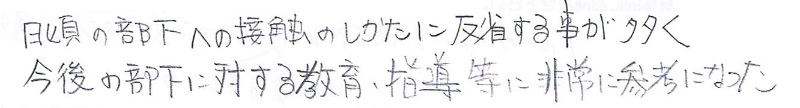 日頃の部下への接触のしかたに反省する事が多く
今後の部下に対する教育、指導等に非常に参考になった